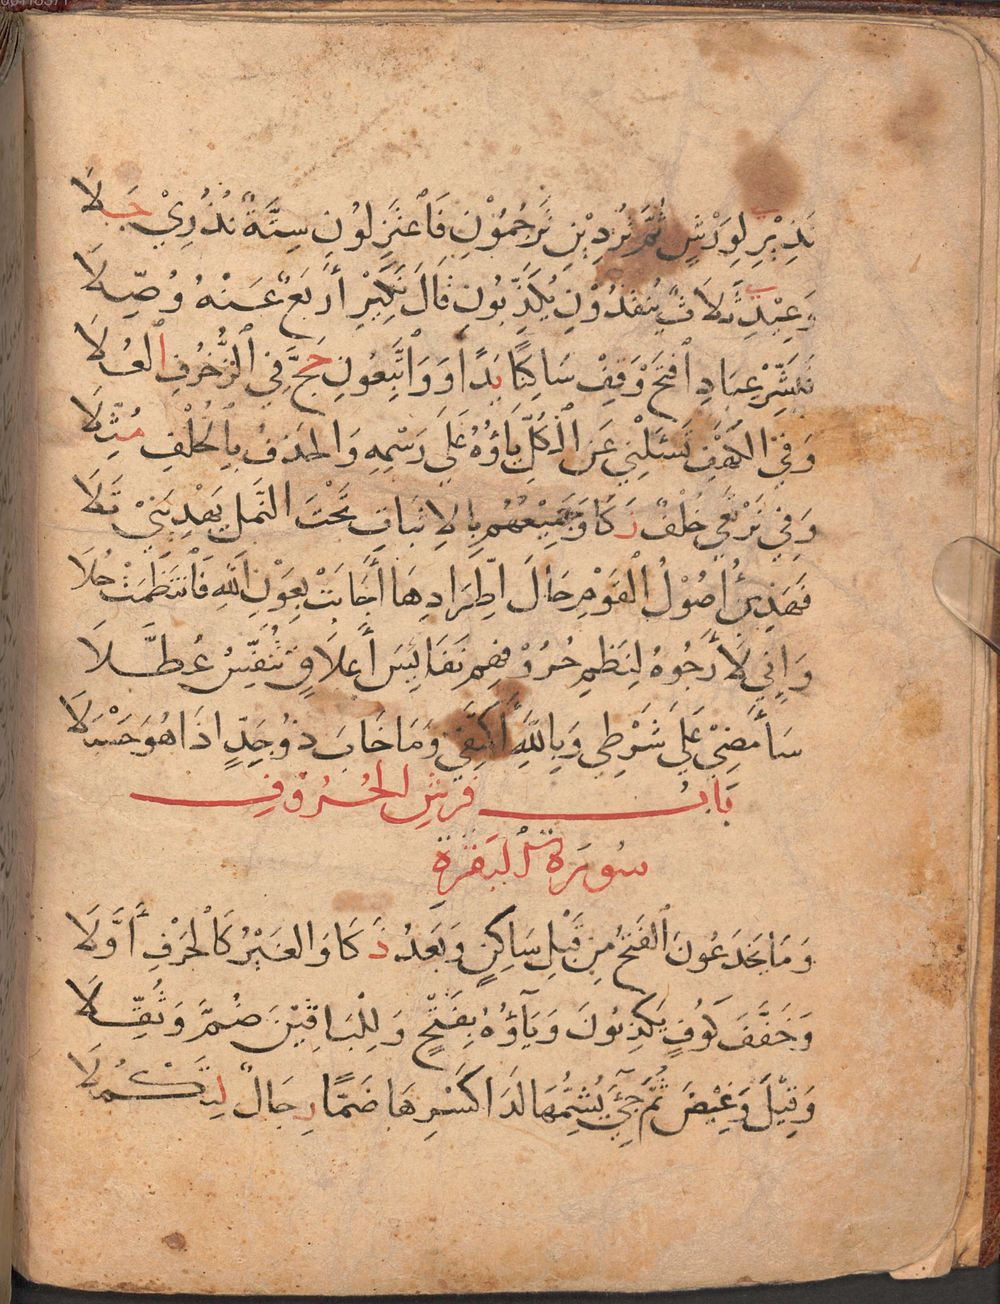 نَذِيْرِ لِوَرْشٍ ثُمَّ تُرْدِيْنِ تَرْجُمُوْنِ فَاعْتَزِلُونِ سِتَّةٌ نُذُرِيْ جَلَا
وَعِيْدِ ثَلَاثٌ يُنْقِذُوْنِ يُكَذِّبُونِ قَالَ نَكِيْرِ أَرْبَعٌ عَنْهُ وُصِّلَا
فَبَشِّرْ عِبَادِ افْتَحْ وَقِفْ سَاكِنًا يَدًا وَوَاتَّبِعُونِ حَجَّ فِي الزُّخْرُفِ الْعُلَا
وَفِي الْكَهْفِ تَسْئَلْنِي عَنِ الْكُلِّ يَاؤُهُ عَلَى رَسْمِهِ وَالْحَذْفُ بِالْخُلْفِ مُثِّلَا
وَفِي نَرْتَعِي خُلْفٌ زَكَا وَجَمِيْعُهُمْ بِالْاِثْبَاتِ تَحْتَ النَّمْلِ يَهْدِيَنِيْ تَلَا
فَهَذِيْ أُصُوْلُ الْقَوْمِ حَالَ اطِّرَادِهَا أَجَابَتْ بِعَوْنِ اللهِ فَانْتَظَمَتْ حُلَا
وَإِنِّي لَأَرْجُوهُ لِنَظْمِ حُرُوْفِهِمْ نَفَايِسَ أَعْلَاقٍ تُنَفِّسُ عُطَّلَا
سَأَمْضِيْ عَلَى شَرْطِي وَبِاللهِ أَكْتَفِي وَمَا خَابَ ذُوْ جِدٍّ اذَا هُوَ حَسْبَلَا
بَابُ فَرْشِ الْحُرُوْفِ
سُورَةُ الْبَقَرَةِ
وَمَا يَخْدَعُونَ الْفَتْحُ مِنْ قَبْلِ سَاكِنٍ وَبَعْدُ ذَكَا وَالْغَيْرُ كَالْحَرْفِ أَوَّلَا
وَخَفَّفَ كُوفٍ يَكْذِبُونَ وَيَآؤُهُ بِفَتْحٍ وَلِلْبَاقِيْنَ ضُمَّ وَثُقِّلَا
وَقِيْلَ وَغِيْضَ ثُمَّ جِيْءَ يُشِمُّهَا لَدَا كَسْرِهَا ضَمًّا رِجَالٌ لِتَكْمُلَا